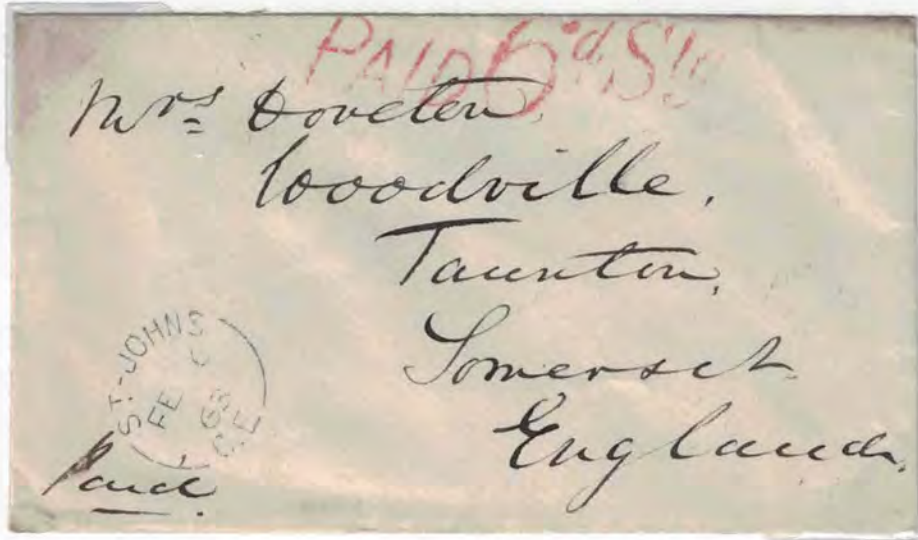 PAID 6d Stg
Mrs Doveton,
Woodville,
Taunton,
Somerset
England,
ST-JOHNS
FE
63
C.E
Paid